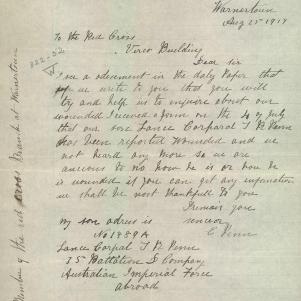 Warnertown
Aug 25 1917
To the Red Cross
Verco Building
Dear sir
I see a advisement in the daly Paper that
if we write to you that you will
try and help us to inquire about our
wounded I received a form on the 4 of July
that our son Lance Corparal T R Venn
has been reported Wounded and we
not heard any more so we are
anxious to no how he is or how he
is wounded if you can get any information
we shall be most thankfull to you
I remain yours
my son adress is
C Venn
No 1989A
Lance Corpal T R Venn
35 Battalion D Company
Australian Imperial Force
abroad
Member of the red cross Branch at Warnertown